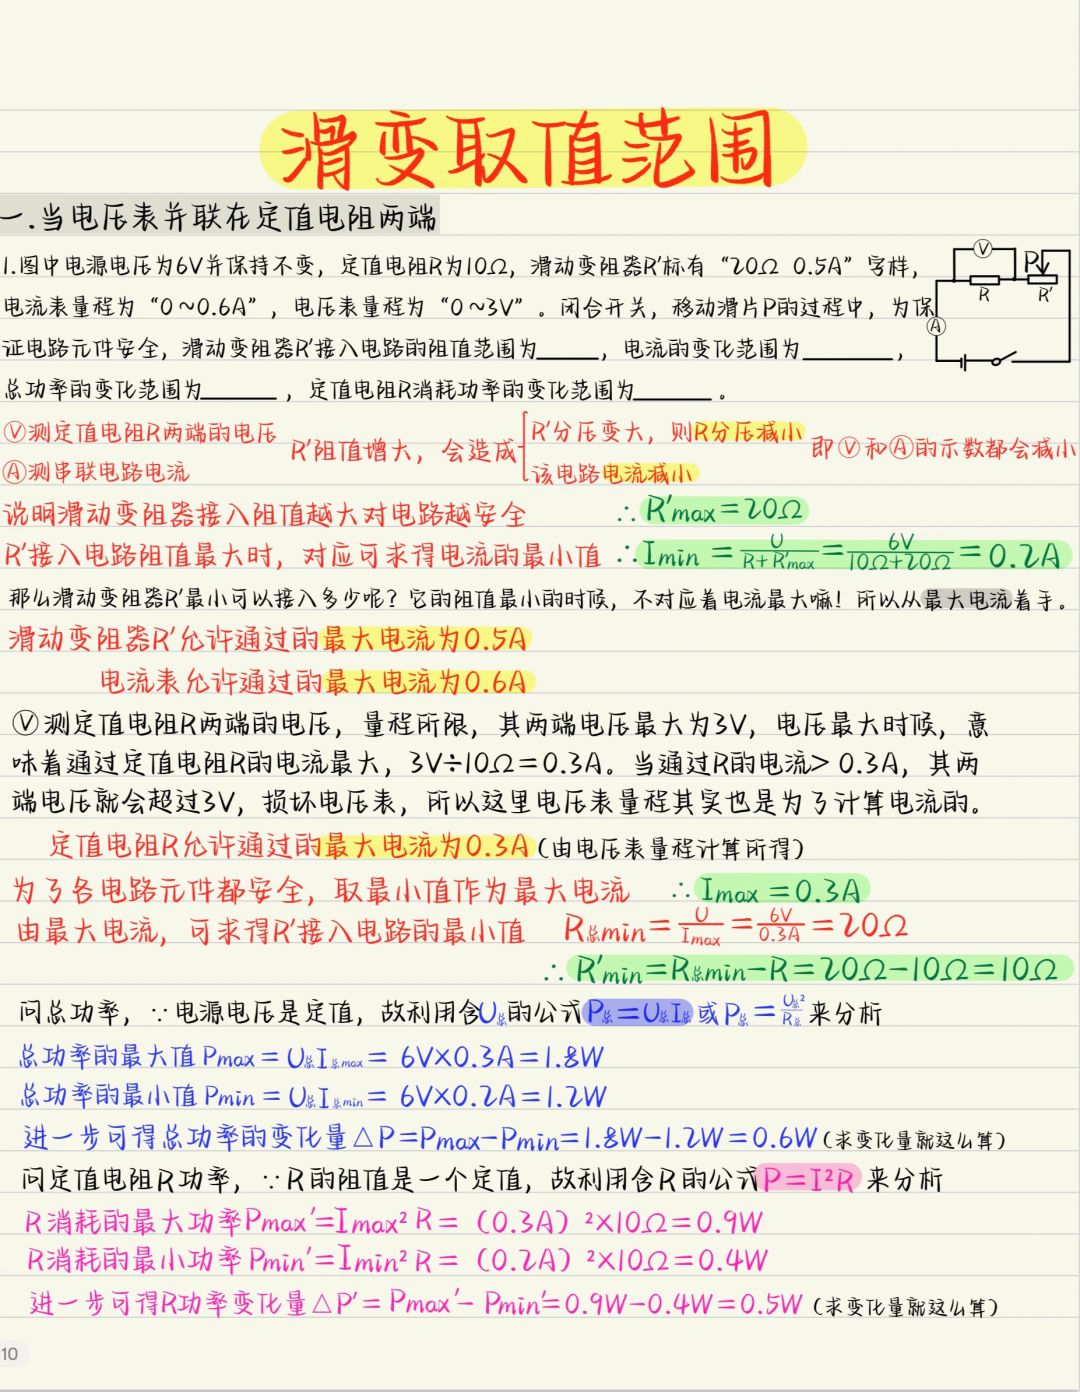 滑变取值范围
一.当电压表并联在定值电阻两端
1.图中电源电压为6V并保持不变，定值电阻R为10Ω，滑动变阻器R′标有“20Ω 0.5A”字样，
电流表量程为“0~0.6A”，电压表量程为“0~3V”。闭合开关，移动滑片P的过程中，为保
证电路元件安全，滑动变阻器R′接入电路的阻值范围为____，电流的变化范围为______，
总功率的变化范围为_____，定值电阻R消耗功率的变化范围为_____。
V
P
R
R′
A
Ⓥ测定值电阻R两端的电压
Ⓐ测串联电路电流
R′阻值增大，会造成
R′分压变大，则R分压减小
该电路电流减小
即Ⓥ和Ⓐ的示数都会减小
说明滑动变阻器接入阻值越大对电路越安全 ∴R′max=20Ω
R′接入电路阻值最大时，对应可求得电流的最小值 ∴Imin=U/(R+R′max)=6V/(10Ω+20Ω)=0.2A
那么滑动变阻器R′最小可以接入多少呢？它的阻值最小的时候，不对应着电流最大嘛！所以从最大电流着手。
滑动变阻器R′允许通过的最大电流为0.5A
电流表允许通过的最大电流为0.6A
Ⓥ测定值电阻R两端的电压，量程所限，其两端电压最大为3V，电压最大时候，意
味着通过定值电阻R的电流最大，3V÷10Ω=0.3A。当通过R的电流>0.3A，其两
端电压就会超过3V，损坏电压表，所以这里电压表量程其实也是为了计算电流的。
定值电阻R允许通过的最大电流为0.3A（由电压表量程计算所得）
为了各电路元件都安全，取最小值作为最大电流 ∴Imax=0.3A
由最大电流，可求得R′接入电路的最小值 R总min=U/Imax=6V/0.3A=20Ω
∴R′min=R总min-R=20Ω-10Ω=10Ω
问总功率，∵电源电压是定值，故利用含U总的公式P总=U总I总或P总=U总²/R总来分析
总功率的最大值Pmax=U总I总max=6V×0.3A=1.8W
总功率的最小值Pmin=U总I总min=6V×0.2A=1.2W
进一步可得总功率的变化量△P=Pmax-Pmin=1.8W-1.2W=0.6W（求变化量就这么算）
问定值电阻R功率，∵R的阻值是一个定值，故利用含R的公式P=I²R来分析
R消耗的最大功率Pmax′=Imax²R=（0.3A）²×10Ω=0.9W
R消耗的最小功率Pmin′=Imin²R=（0.2A）²×10Ω=0.4W
进一步可得R功率变化量△P′=Pmax′-Pmin′=0.9W-0.4W=0.5W（求变化量就这么算）
10